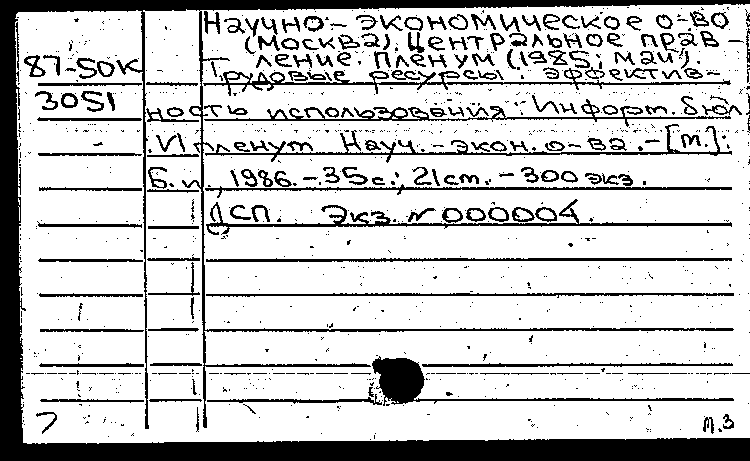 Научно-экономическое о-во
(Москва). Центральное прав-
87-50К ление. Пленум (1985; май).
Трудовые ресурсы: эффектив-
3051 ность использования: Информ. бюл.
II пленум Науч.-экон. о-ва.-[М.]:
Б.и., 1986.-35с.; 21см.-300экз.
ДСП. Экз. № 000004.
М.3